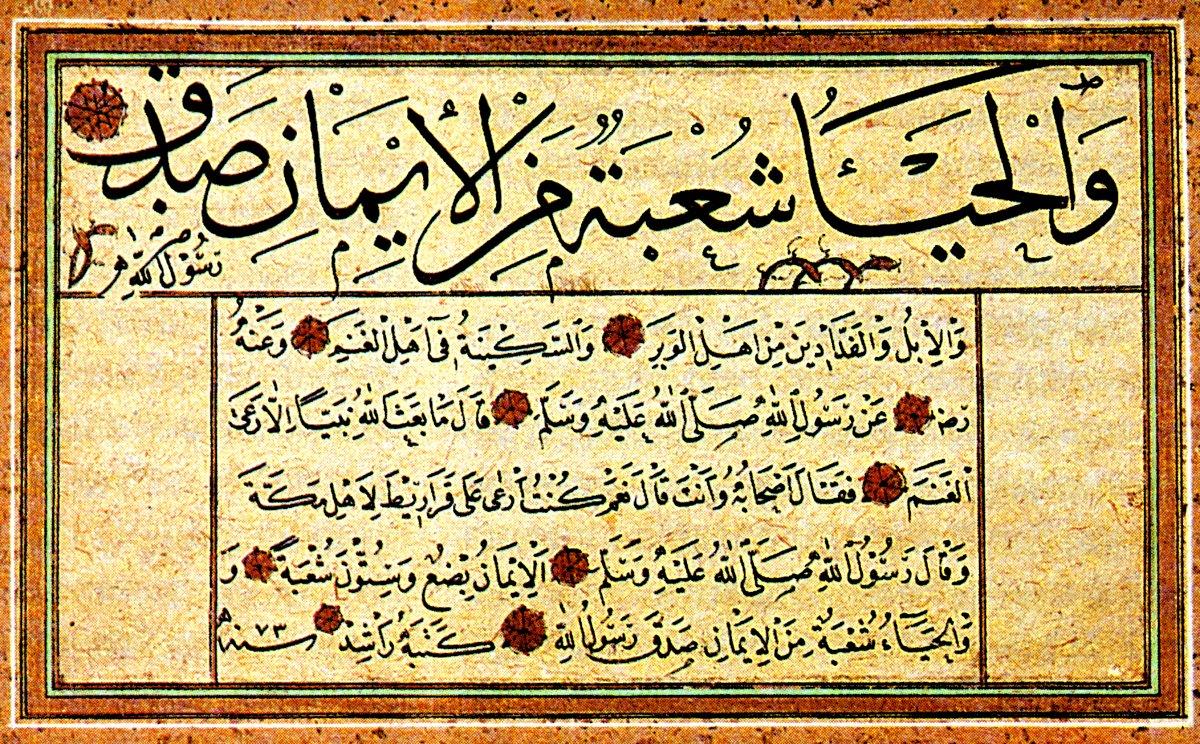 وَالْحَيَاءُ شُعْبَةٌ مِنَ الْإِيمَانِ صَدَقَ
رَسُولُ اللهِ
وَالْإِبِلِ وَالْفَدَّادِينَ مِنْ اَهْلِ الْوَبَرِ وَالسَّكِينَةُ فِى اَهْلِ الْغَنَمِ وَعَنْهُ
رضـ عَنْ رَسُولِ اللهِ صَلَّى اللهُ عَلَيْهِ وَسَلَّمَ قَالَ مَا بَعَثَ اللهُ نَبِيًّا اِلَّا رَعَى
الْغَنَمَ فَقَالَ اَصْحَابُهُ وَاَنْتَ قَالَ نَعَمْ كُنْتُ اَرْعَى عَلَى قَرَارِيطَ لِاَهْلِ مَكَّةَ
وَقَالَ رَسُولُ اللهِ صَلَّى اللهُ عَلَيْهِ وَسَلَّمَ اَلْاِيمَانُ بِضْعٌ وَسِتُّونَ شُعْبَةً وَ
وَالْحَيَاءُ شُعْبَةٌ مِنَ الْاِيمَانِ صَدَقَ رَسُولُ اللهِ كَتَبَهُ رَاشِد سنة ٧٣